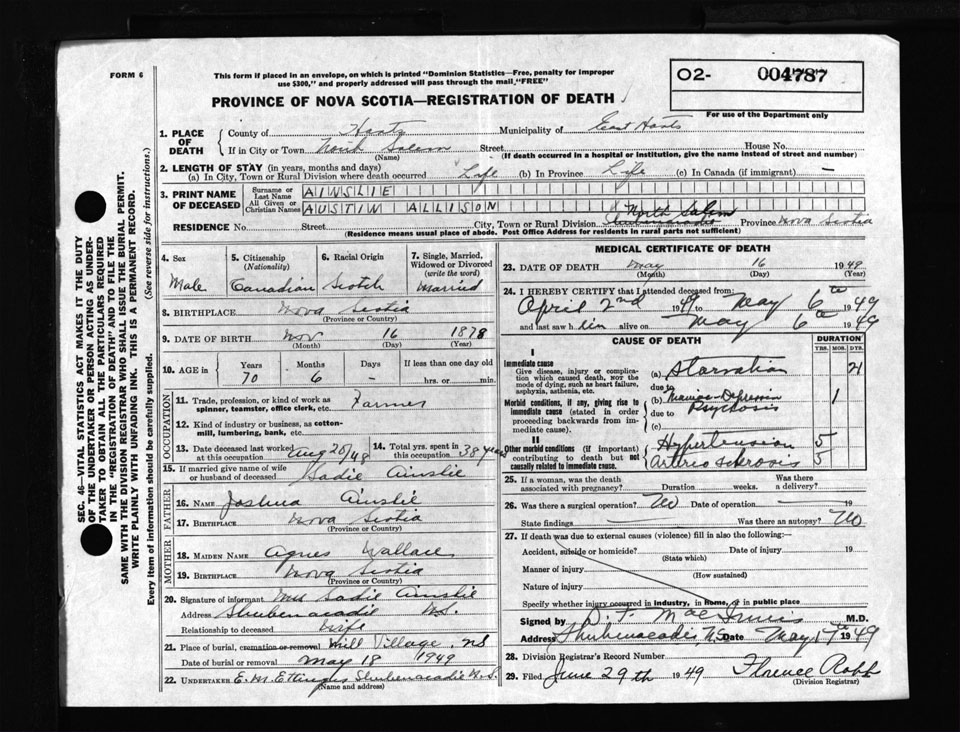 FORM 6
This form if placed in an envelope, on which is printed "Dominion Statistics—Free, penalty for improper
use $300," and properly addressed will pass through the mail "FREE"
PROVINCE OF NOVA SCOTIA—REGISTRATION OF DEATH
O2- 004787
For use of the Department only
1. PLACE OF DEATH
County of Hants Municipality of East Hants
If in City or Town North Salem Street House No.
(Name) (If death occurred in a hospital or institution, give the name instead of street and number)
2. LENGTH OF STAY (in years, months and days)
(a) In City, Town or Rural Division where death occurred Life (b) In Province Life (c) In Canada (if immigrant) —
3. PRINT NAME OF DECEASED
Surname or Last Name AINSLIE
All Given or Christian Names AUSTIN ALLISON
RESIDENCE No. Street City, Town or Rural Division North Salem Province Nova Scotia
(Residence means usual place of abode. Post Office Address for residents in rural parts not sufficient)
4. Sex Male
5. Citizenship (Nationality) Canadian
6. Racial Origin Scotch
7. Single, Married, Widowed or Divorced (write the word) Married
8. BIRTHPLACE Nova Scotia
(Province or Country)
9. DATE OF BIRTH Nov 16 1878
(Month) (Day) (Year)
10. AGE in Years 70 Months 6 Days - If less than one day old
hrs. or min.
OCCUPATION
11. Trade, profession, or kind of work as
spinner, teamster, office clerk, etc. Farmer
12. Kind of industry or business, as cotton-
mill, lumbering, bank, etc.
13. Date deceased last worked at this occupation Aug 20/48
14. Total yrs. spent in this occupation 38 years
15. If married give name of wife
or husband of deceased Sadie Ainslie
FATHER
16. NAME Joshua Ainslie
17. BIRTHPLACE Nova Scotia
(Province or Country)
MOTHER
18. MAIDEN NAME Agnes Wallace
19. BIRTHPLACE Nova Scotia
(Province or Country)
20. Signature of informant Mrs Sadie Ainslie
Address Shubenacadie N.S.
Relationship to deceased Wife
21. Place of burial, cremation or removal Mill Village, NS
Date of burial or removal May 18 1949
22. UNDERTAKER E. M. Ettinger Shubenacadie N.S.
(Name and address)
MEDICAL CERTIFICATE OF DEATH
23. DATE OF DEATH May 16 1949
(Month) (Day) (Year)
24. I HEREBY CERTIFY that I attended deceased from:
April 2nd 1949 to May 6th 1949
and last saw him alive on May 6th 1949
CAUSE OF DEATH
DURATION
YRS. MOS. DYS.
I
Immediate cause
Give disease, injury or complication which caused death, NOT the mode of dying, such as heart failure, asphyxia, asthenia, etc.
(a) Starvation 21
due to
Morbid conditions, if any, giving rise to immediate cause (stated in order proceeding backwards from immediate cause).
(b) Manic-Depression 1
due to Psychosis
(c)
II
Other morbid conditions (if important) contributing to death but not causally related to immediate cause.
Hypertension 5
Arteriosclerosis 5
25. If a woman, was the death associated with pregnancy? Duration weeks. Was there a delivery?
26. Was there a surgical operation? No Date of operation 19
State findings Was there an autopsy? No
27. If death was due to external causes (violence) fill in also the following:—
Accident, suicide or homicide? Date of injury 19
(State which)
Manner of injury
(How sustained)
Nature of injury
Specify whether injury occurred in industry, in home, or in public place
Signed by D. F. MacInnis M.D.
Address Shubenacadie, N.S. Date May 17th 1949
28. Division Registrar's Record Number
29. Filed June 29th 1949 Florence Robb
(Division Registrar)
SEC. 46—VITAL STATISTICS ACT MAKES IT THE DUTY
OF THE UNDERTAKER OR PERSON ACTING AS UNDER-
TAKER TO OBTAIN ALL THE PARTICULARS REQUIRED
IN THE "REGISTRATION OF DEATH" AND TO FILE THE
SAME WITH THE DIVISION REGISTRAR WHO SHALL ISSUE THE BURIAL PERMIT.
WRITE PLAINLY WITH UNFADING INK. THIS IS A PERMANENT RECORD.
Every item of information should be carefully supplied. (See reverse side for instructions.)